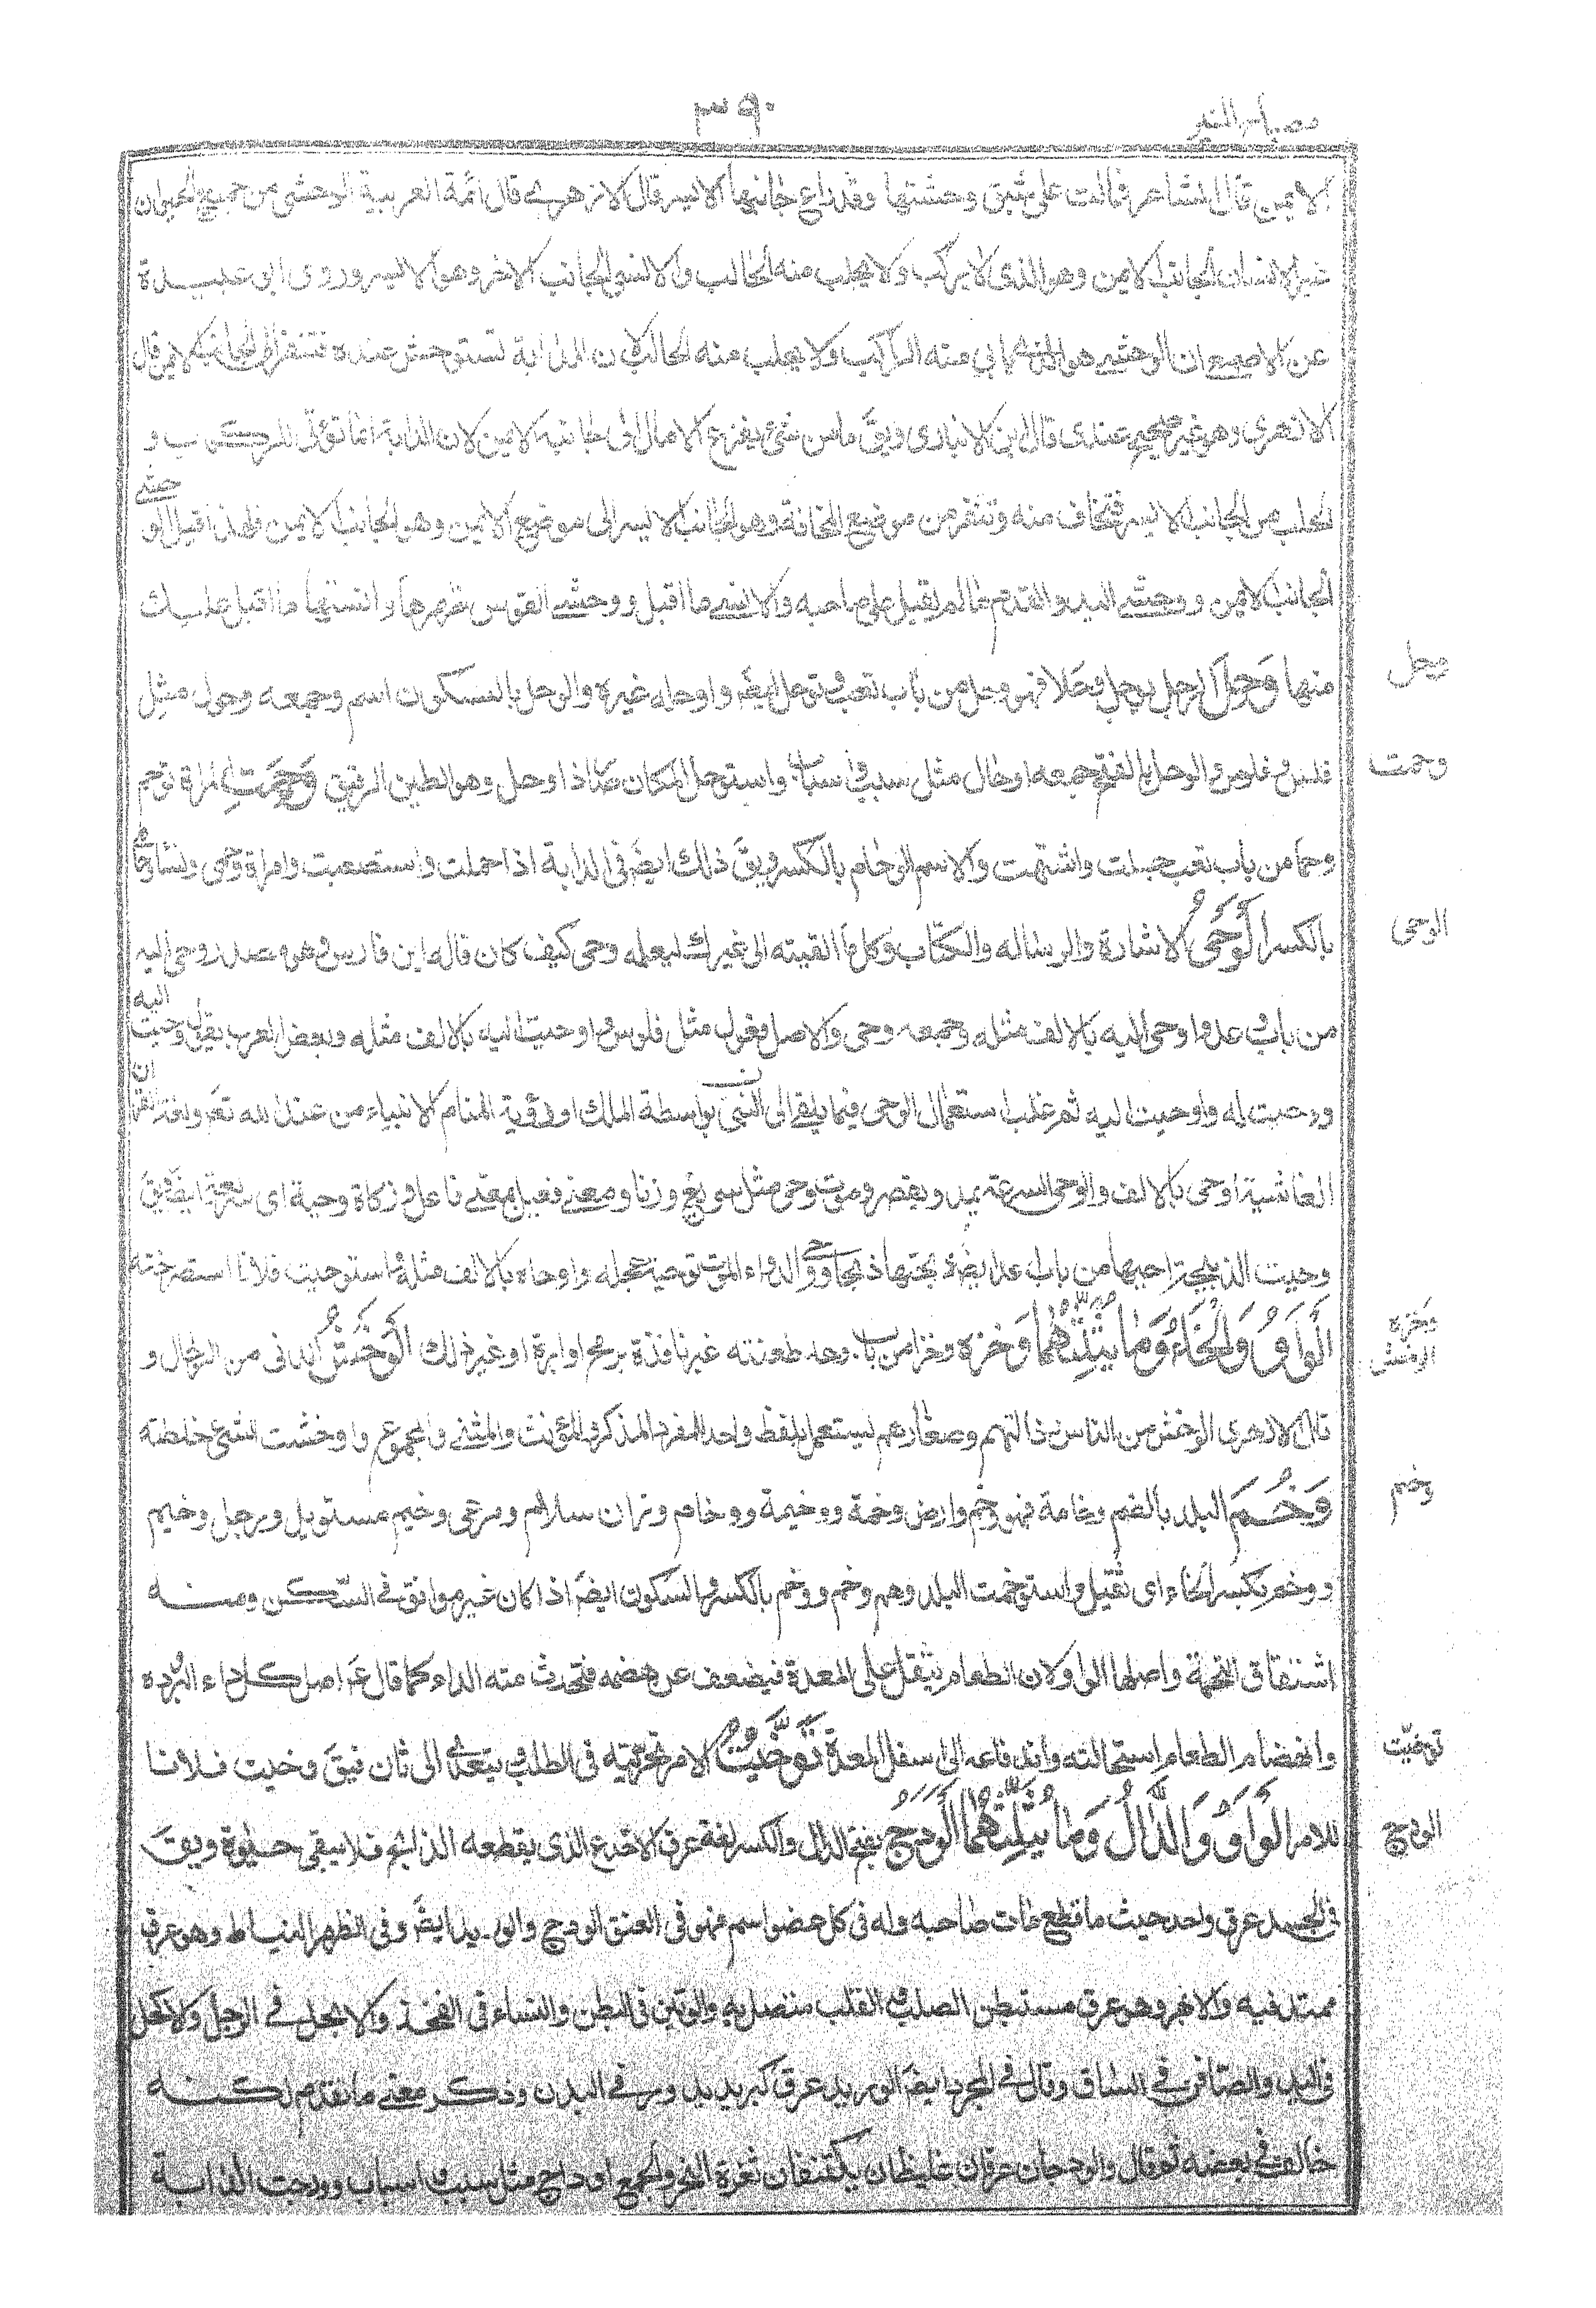 مصباح المنير
٣٩٠
الايمن قال الشاعر فمالت على شق وحشيها وقد راع جانبها الايسر قال الازهرى قال ائمة العربية الوحشى من جميع الحيوان
غير الانسان الجانب الايمن وهو الذى لا يركب ولا يحلب منه الحالب والانسى الجانب الاخر وهو الايسر وروى ابو عبيدة
عن الاصمعى ان الوحشى هو الذى ياتى منه الراكب ولا يحلب منه الحالب لان الدابة تستوحش عنده فتنفر الى الجانب الايمن قال
الازهرى وهو غير صحيح عندى قال ابن الانبارى ويق ما من شئ يفزع الا مال الى جانبه الايمن لان الدابة انما تؤتى للركوب و
الحلب من الجانب الايسر فتخاف منه وتنفر من موضع المخافة وهو الجانب الايسر الى موضع الامن وهو الجانب الايمن فلهذا قيل الوحشى
الجانب الايمن ووحشى اليد والقدم ما لم يقبل على صاحبه والانسى ما اقبل ووحشى القوس ظهرها وانسيها ما اقبل عليك
وحل
منها وَحِلَ الرجل يوحل وحلا فهو وحل من باب تعب وتوحل ايضً واوحله غيره والوحل بالسكون اسم وجمعه وحول مثل
وحمت
فلس وفلوس والوحل بالفتح جمعه اوحال مثل سبب واسباب واستوحل المكان صار ذا وحل وهو الطين الرقيق وَحِمَتِ المراة توحم
وحما من باب تعب حبلت واشتهت والاسم الوحام بالكسر ويق ذلك ايضً فى الدابة اذا حملت واستصعبت وامراة وحمى ونساء وحام
الوحى
بالكسر اَلْوَحْىُ الاشارة والرسالة والكتاب وكل ما القيته الى غيرك ليعلمه وحى كيف كان قاله ابن فارس وهو مصدر وحى اليه
من باب وعد واوحى اليه بالالف مثله وجمعه وحى والاصل فعول مثل فلوس واوحيت اليه بالالف مثله وبعض العرب يقول وحيت اليه
ووحيت له واوحيت اليه ثم غلب استعمال الوحى فيما يلقى الى النبى بواسطة الملك او فى رؤية المنام الانبياء من عند الله تعَ ولغة القران
الفاشية اوحى بالالف والوحى السرعة يمد ويقصر وموت وحى مثل سريع وزنا ومعنى فعيل بمعنى فاعل وزكاة وحية اى سريعة ايضً ويق
وحيت الذبيحة احيها من باب وعد ايضً ذبحتها ذبحا وحيا ووحى الدواء الموت توحية عجله واوحاه بالالف مثله واستوحيت فلانا استصرخته
وخزه
الوخش
اَلْوَاوُ وَالْخَاءُ وَمَا يُثَلِّثُهُمَا وَخزه وخزا من باب وعد طعنته غير نافذة برمح او ابرة او غير ذلك اَلْوَخْشُ الدنى من الرجال و
قال الازهرى الوخش من الناس رذالتهم وصغارهم يستعمل بلفظ واحد للمفرد المذكر والمؤنث والمثنى والمجموع واوخشت الشئ خلطته
وخم
وَخُمَ البلد بالضم وخامة فهو وخم وارض وخمة ووخيمة ووخام وزان سلام ومرعى وخيم مستوبل ورجل وخيم
ووخم بكسر الخاء اى ثقيل واستوخمت البلد وهم وخم ووخم بالكسر والسكون ايضً اذا كان غير موافق فى السّكن ومنه
اشتقاق التخمة واصلها الواو لان الطعام يثقل على المعدة فيضعف عن هضمه فتحدث منه الداء كما قال عَ اصل كل داء البَردة
توخيّت
وانهضام الطعام استحالته واندفاعه الى اسفل المعدة تَوَخَّيْتُ الامر تحريته فى الطلب يتعدى الى ثان فيق وخيت فلانا
الودج
للامر اَلْوَاوُ وَالدَّالُ وَمَا يُثَلِّثُهُمَا اَلْوَدَجُ بفتح الدال والكسر لغة عرق الاخدع الذى يقطعه الذابح فلا يبقى حيوة ويق
فى الجسد عرق واحد حيث ما قطع مات صاحبه وله فى كل عضو اسم فهو فى العنق الودج والوريد ايضً وفى الظهر النياط وهو عرق
ممتد فيه والابهر وهو عرق مستبطن الصلب والقلب متصل به والوتين فى البطن والنساء فى الفخذ والابجل فى الرجل والاكحل
فى اليد والصّافن فى الساق وقال فى المجرد ايضً الوريد عرق كبير يدور فى البدن وذكر معنى ما تقدم لكنه
خالف فى بعضه ثم قال والودجان عرقان غليظان يكتنفان ثغرة النحر والجمع اوداج مثل سبب واسباب وودجت الدابة